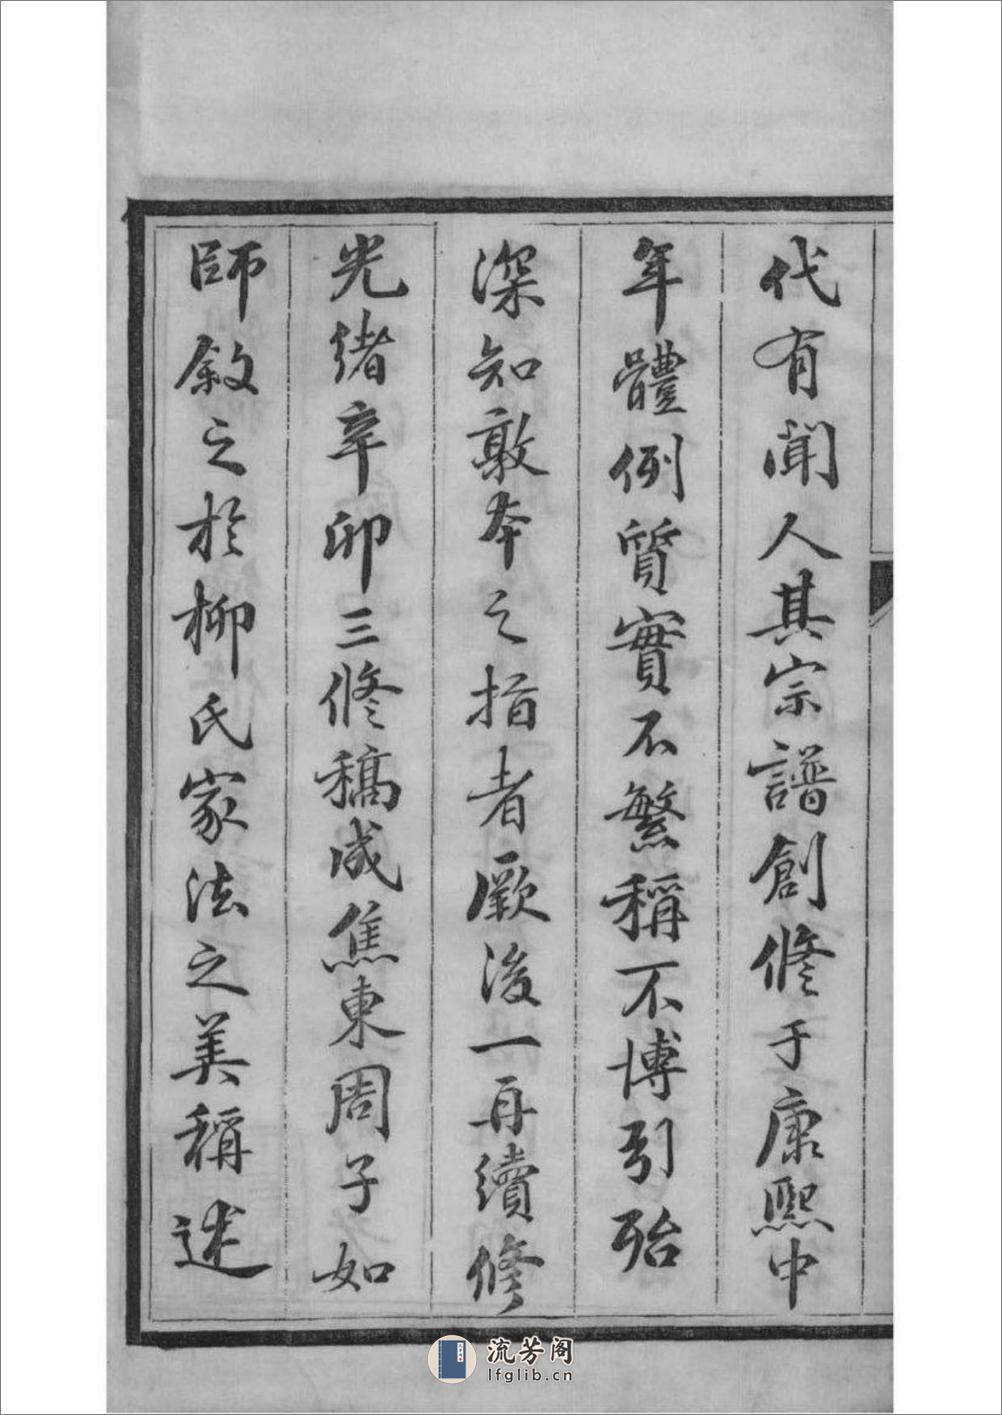 代有聞人其宗譜創修于康熙中
年體例質實不繁稱不博引殆
深知敦本之指者厥後一再續修
光緒辛卯三修稿成焦東周子如
師敘之於柳氏家法之美稱述
流芳阁
lfglib.cn